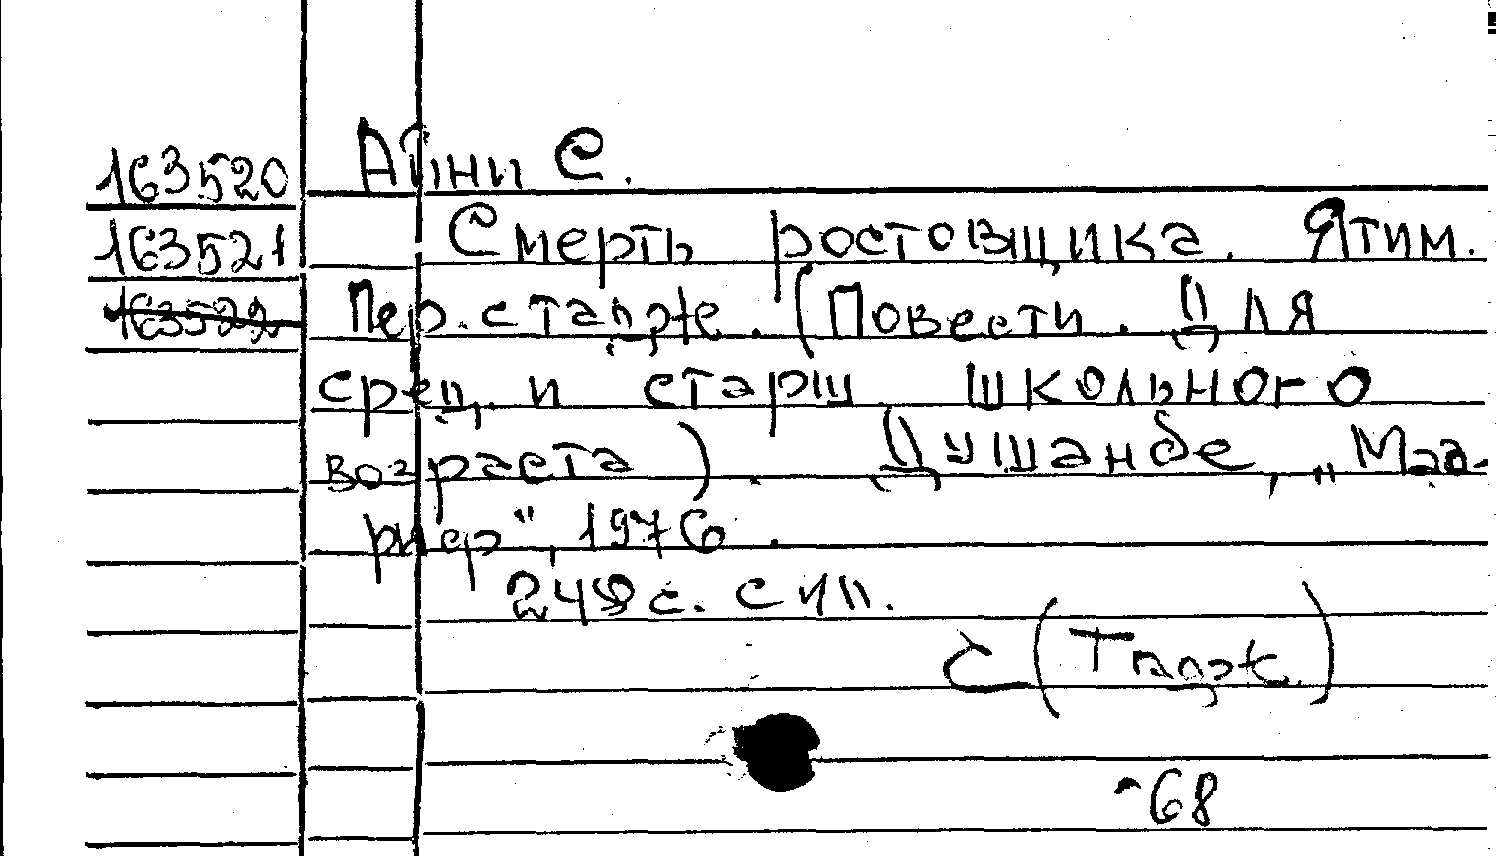 163520 Айни С.
163521 Смерть ростовщика. Ятим.
163522 Пер. с тадже. (Повести. Для
сред. и старш. школьного
возраста). Душанбе, „Маа-
риф", 1976.
248 с. с ил.
С (Тадж.)
68